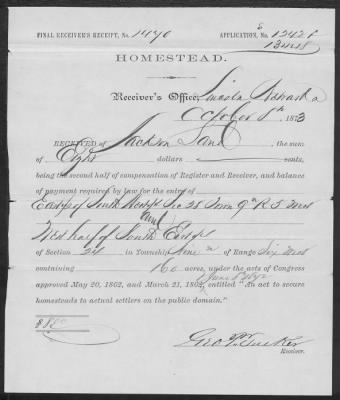 FINAL RECEIVER'S RECEIPT, No. 1490 APPLICATION, No.
HOMESTEAD.
Receiver's Office, Lincoln Nebraska
October 8th 1873
RECEIVED OF Jackson Lane, the sum
of Eight dollars cents,
being the second half of compensation of Register and Receiver, and balance
of payment required by law for the entry of
East hf of South West qr Sec 28 Town 9 R 5 West
and
West half of South East qr
of Section 24 in Township Nine N of Range Six West
containing 160 acres, under the acts of Congress
approved May 20, 1862, and March 21, 1864, entitled "An act to secure
homesteads to actual settlers on the public domain."
$ 8.00
Geo P. Tucker
Receiver.